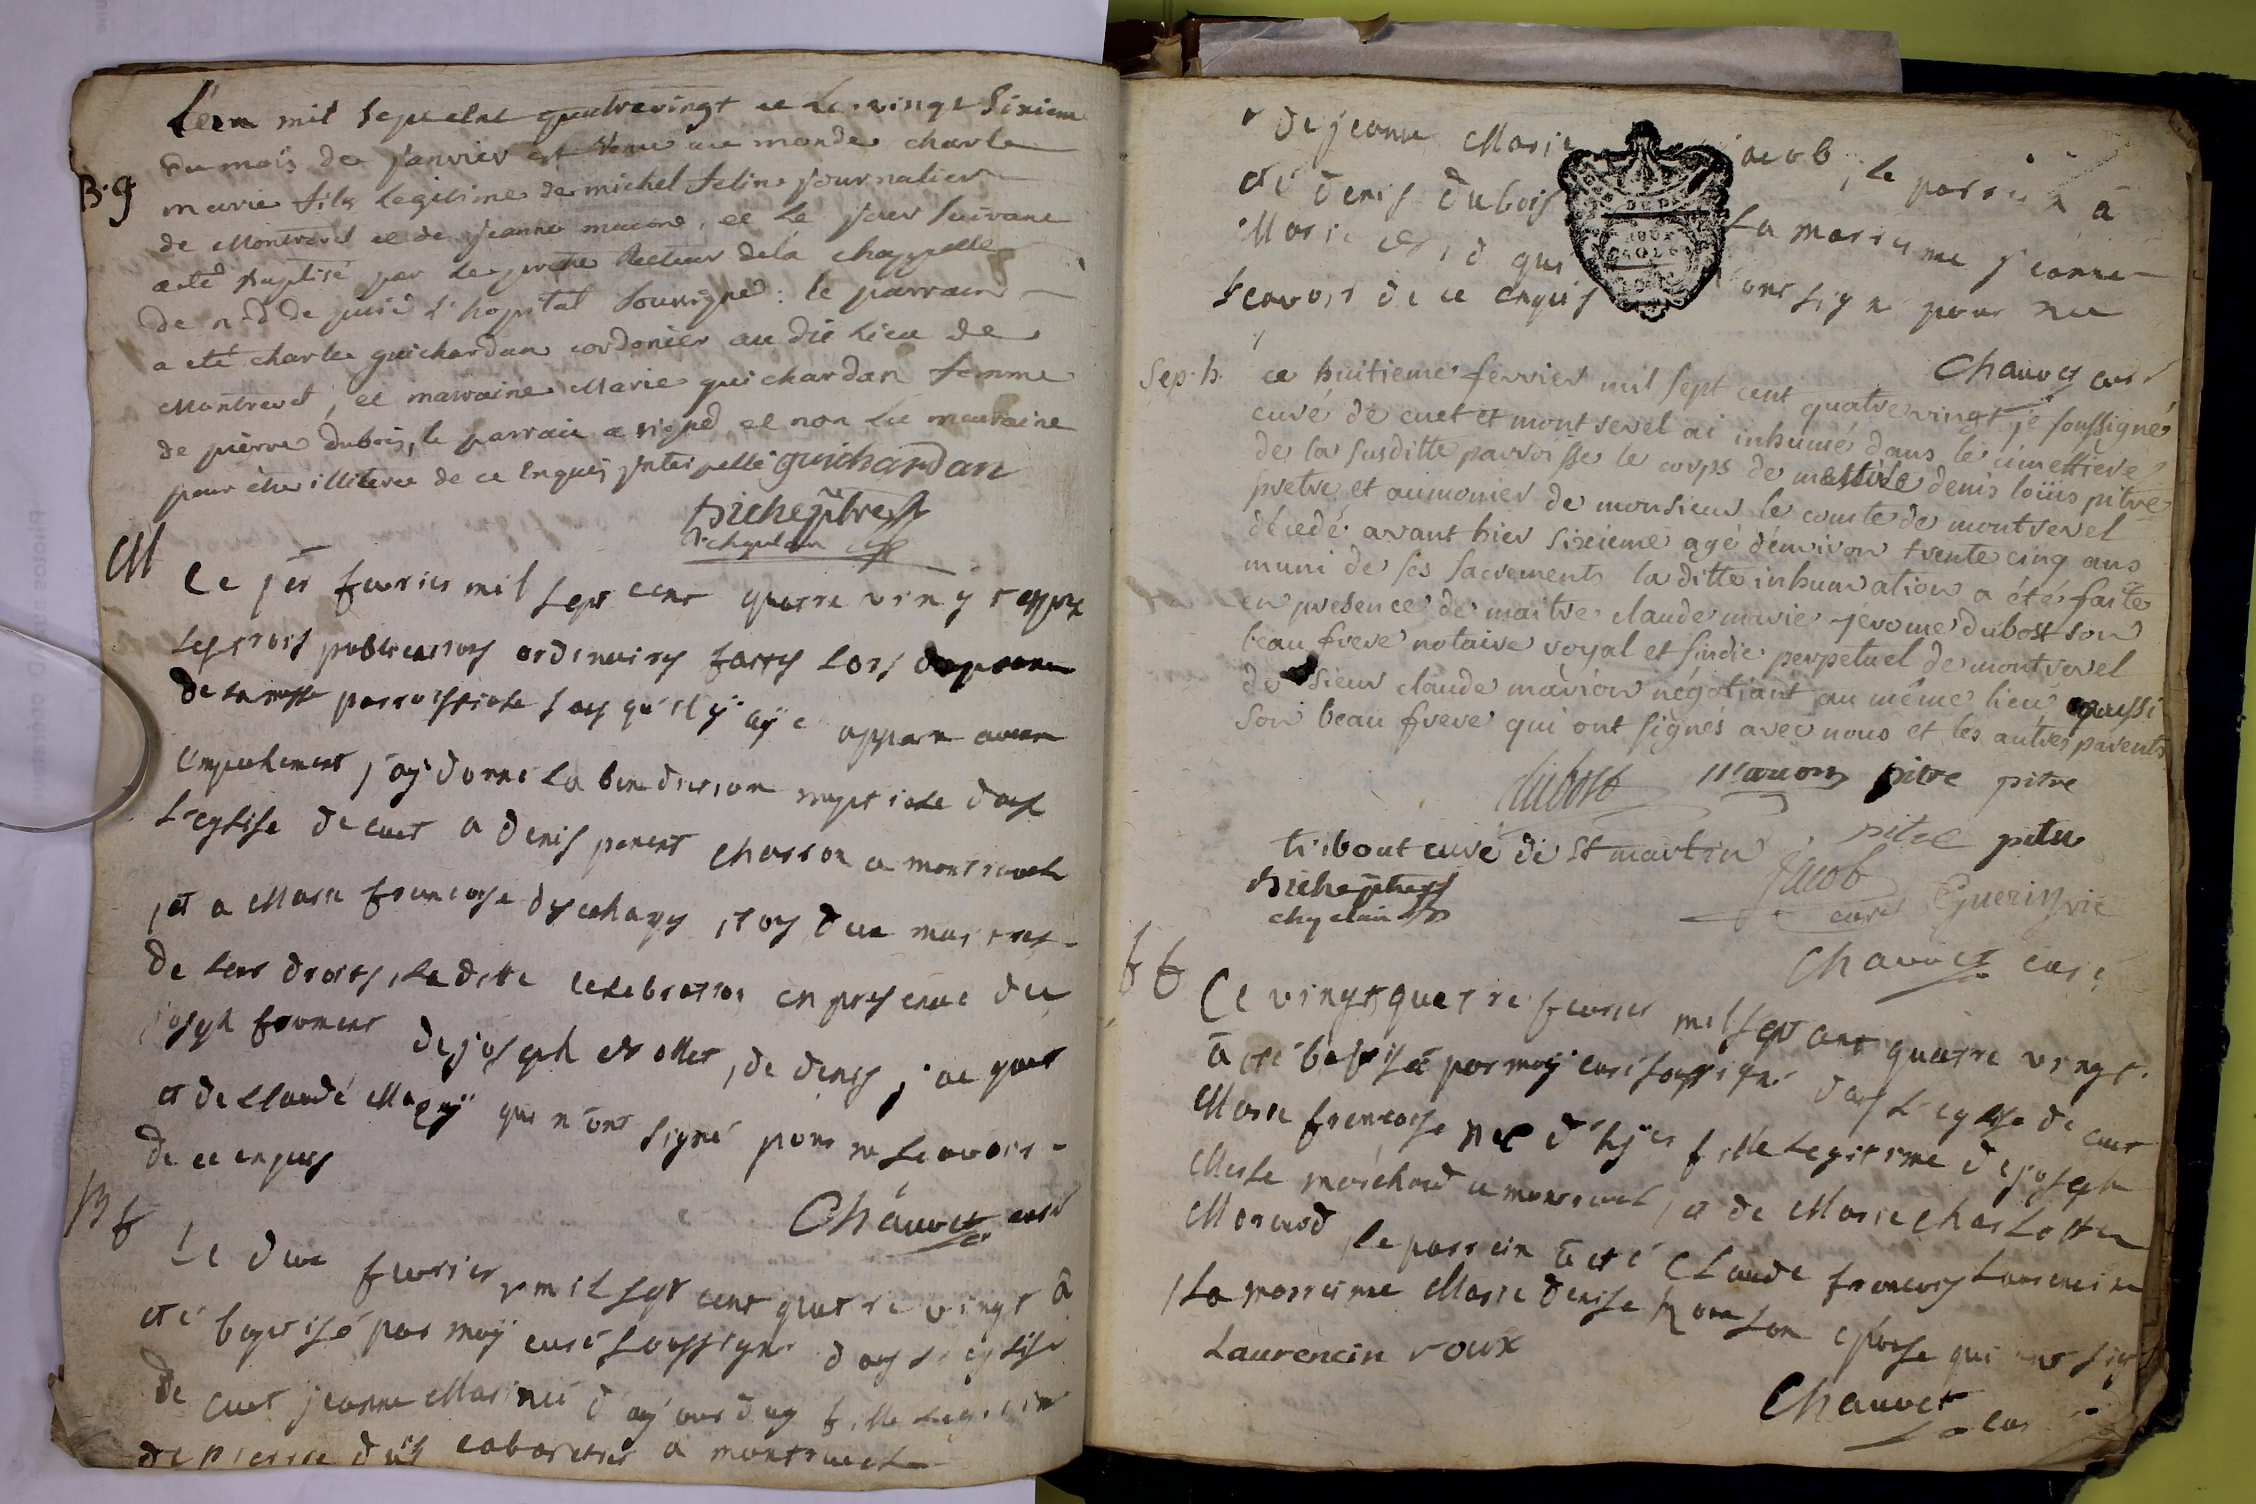 L'an mil sept cent quatrevingt et le vingt sixieme
du mois de janvier est venu au monde charle
B. g
marie fils legitime de michel felin journalier
de Montrevel et de jeanne macon, et le jour suivant
a eté baptisé par le pretre Recteur dela chappelle
de n.d de pitié l'hopital soussigné : le parrain
a eté charle guichardan cordonier au dit lieu de
Montrevel, et marraine Marie guichardan femme
de pierre dubois, le parrain a signé et non la marraine
pour être illiteree de ce Enquis interpellé guichardan
chapelain
M
Ce jer fevrier mil sept cent quatre vingt apprs
les trois publications ordinaires faittes lors du prone
de la messe parroissiale sans qu'il y ayt apparu aucun
empechement j'ay donné la benediction nuptiale dans
l'eglise de cuet a denis panent chasson a montrevel
et a Marie francoise , tous deux maitres
de leur droits, la ditte celebration en presence de
joseph froment de joseph , de denis
et de Claude qui n'ont signé pour ne scavoir
de ce enquis
Chauvet curé
B f
Le deux fevrier mil sept cent quatre vingt a
eté baptisé par moy curé soussigné dans l'eglise
de cuet jeanne Marie née d'aujourduy fille legitime
de pierre cabaretier a montrevel
et de jeanne Marie jacob, le parrain a
eté denis dubois La marraine jeanne
Marie qui ont signé pour ne
scavoir de ce enquis
Chauvet curé
Sep. h. ce huitieme fevrier mil sept cent quatrevingt je soussigné
curé de cuet et montrevel ai inhumé dans le cimettiere
de la susditte parroisse le corps de messire denis loüis pitre
pretre et aumonier de monsieur le comte de montrevel
décedé avant hier sixieme agé d'environ trente cinq ans
muni de ses sacrements la ditte inhumation a été faite
en presence de maitre claude marie jérome dubost son
beau frere notaire royal et sindic perpetuel de montrevel
de sieur claude marion négotiant au même lieu aussi
son beau frere qui ont signés avec nous et les autres parents
dubost marion pitre pitre
tribout curé de St martin pitre pitre
chapelain
jacob curé Guerin vic
Chauvet curé
b f
Ce vingt quatre fevrier mil sept cent quatre vingt
a eté baptisé par moy curé soussigné dans l'eglise de cuet
Marie francoise née d'hyer fille legitime de joseph
Merle marchand a montrevel, et de Marie charlotte
Morand, le parrain a eté Claude francois Laurencin
La marraine Marie denise son epouse qui ont signé
Laurencin roux
Chauvet curé